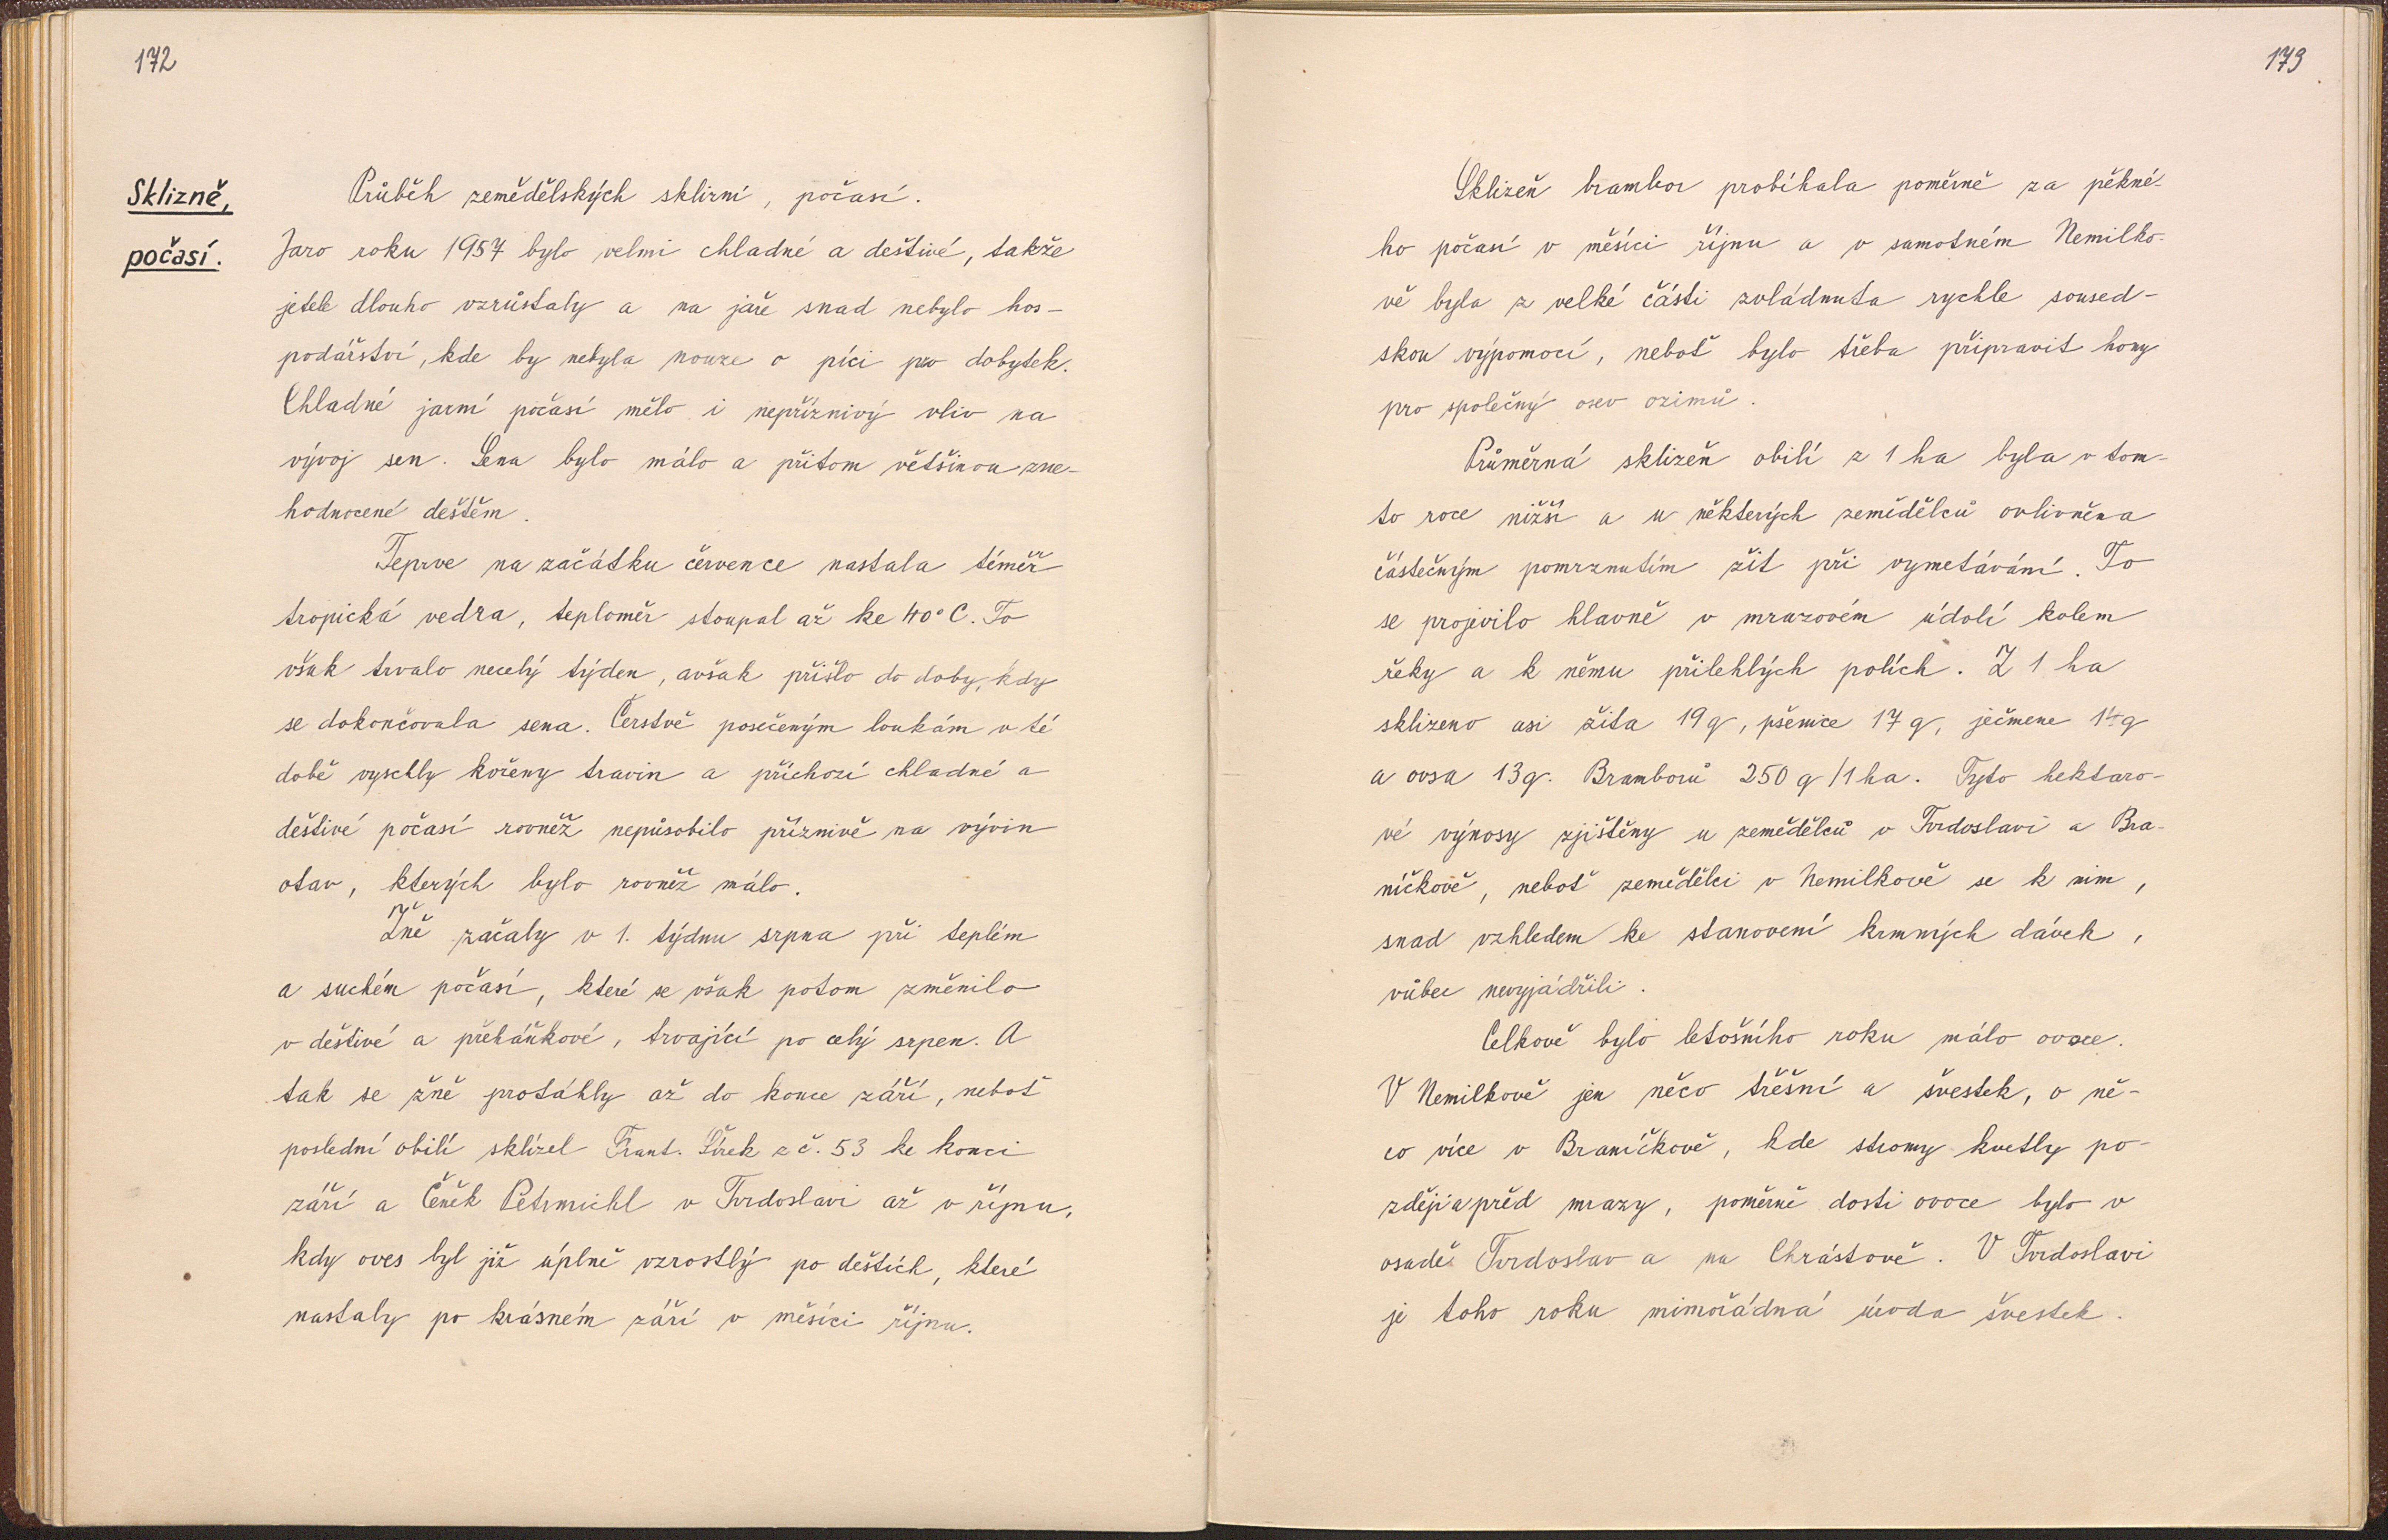 172
Sklizně,
počasí.
Průběh zemědělských sklizní, počasí.
Jaro roku 1957 bylo velmi chladné a deštivé, takže
jetele dlouho vzrůstaly a na jaře snad nebylo hos-
podářství, kde by nebyla nouze o píci pro dobytek.
Chladné jarní počasí mělo i nepříznivý vliv na
vývoj sen. Sena bylo málo a přitom většinou zne-
hodnocené deštěm.
Teprve na začátku července nastala téměř
tropická vedra, teploměr stoupal až ke 40° C. To
však trvalo necelý týden, avšak přišlo do doby, kdy
se dokončovala sena. Čerstvě posečeným loukám v té
době vyschly kořeny travin a příchozí chladné a
deštivé počasí rovněž nepůsobilo příznivě na vývin
otav, kterých bylo rovněž málo.
Žně začaly v 1. týdnu srpna při teplém
a suchém počasí, které se však potom změnilo
v deštivé a přeháňkové, trvající po celý srpen. A
tak se žně protáhly až do konce září, neboť
poslední obilí sklízel Frant. Šírek z č. 53 ke konci
září a Čeněk Petrmichl v Tvrdoslavi až v říjnu,
kdy oves byl již úplně vzrostlý po deštích, které
nastaly po krásném září v měsíci říjnu.
173
Sklizeň brambor probíhala poměrně za pěkné-
ho počasí v měsíci říjnu a v samotném Nemilko-
vě byla z velké části zvládnuta rychle soused-
skou výpomocí, neboť bylo třeba připravit hony
pro společný osev ozimů.
Průměrná sklizeň obilí z 1 ha byla v tom-
to roce nižší a u některých zemědělců ovlivněna
částečným pomrznutím žit při vymetávání. To
se projevilo hlavně v mrazovém údolí kolem
řeky a k němu přilehlých polích. Z 1 ha
sklizeno asi žita 19 q, pšenice 17 q, ječmene 14 q
a ovsa 13 q. Bramborů 250 q/1 ha. Tyto hektaro-
vé výnosy zjištěny u zemědělců v Tvrdoslavi a Bra-
níčkově, neboť zemědělci v Nemilkově se k nim,
snad vzhledem ke stanovení krmných dávek,
vůbec nevyjádřili.
Celkově bylo letošního roku málo ovoce.
V Nemilkově jen něco třešní a švestek, o ně-
co více v Braníčkově, kde stromy kvetly po-
zději a před mrazy, poměrně dosti ovoce bylo v
osadě Tvrdoslav a na Chrástově. V Tvrdoslavi
je toho roku mimořádná úroda švestek.